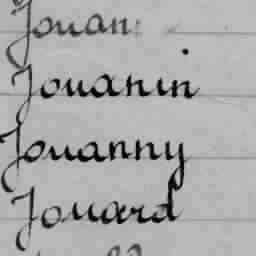 Jouan
Jouanin
Jouanny
Jouard